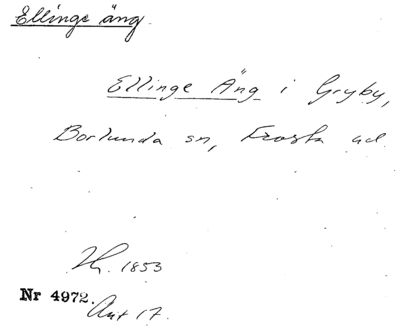 Ellinge äng.
Ellinge Äng i Gryby,
Borlunda sn, Frosta hd.
1853
Nr 4972.
Ant 17.